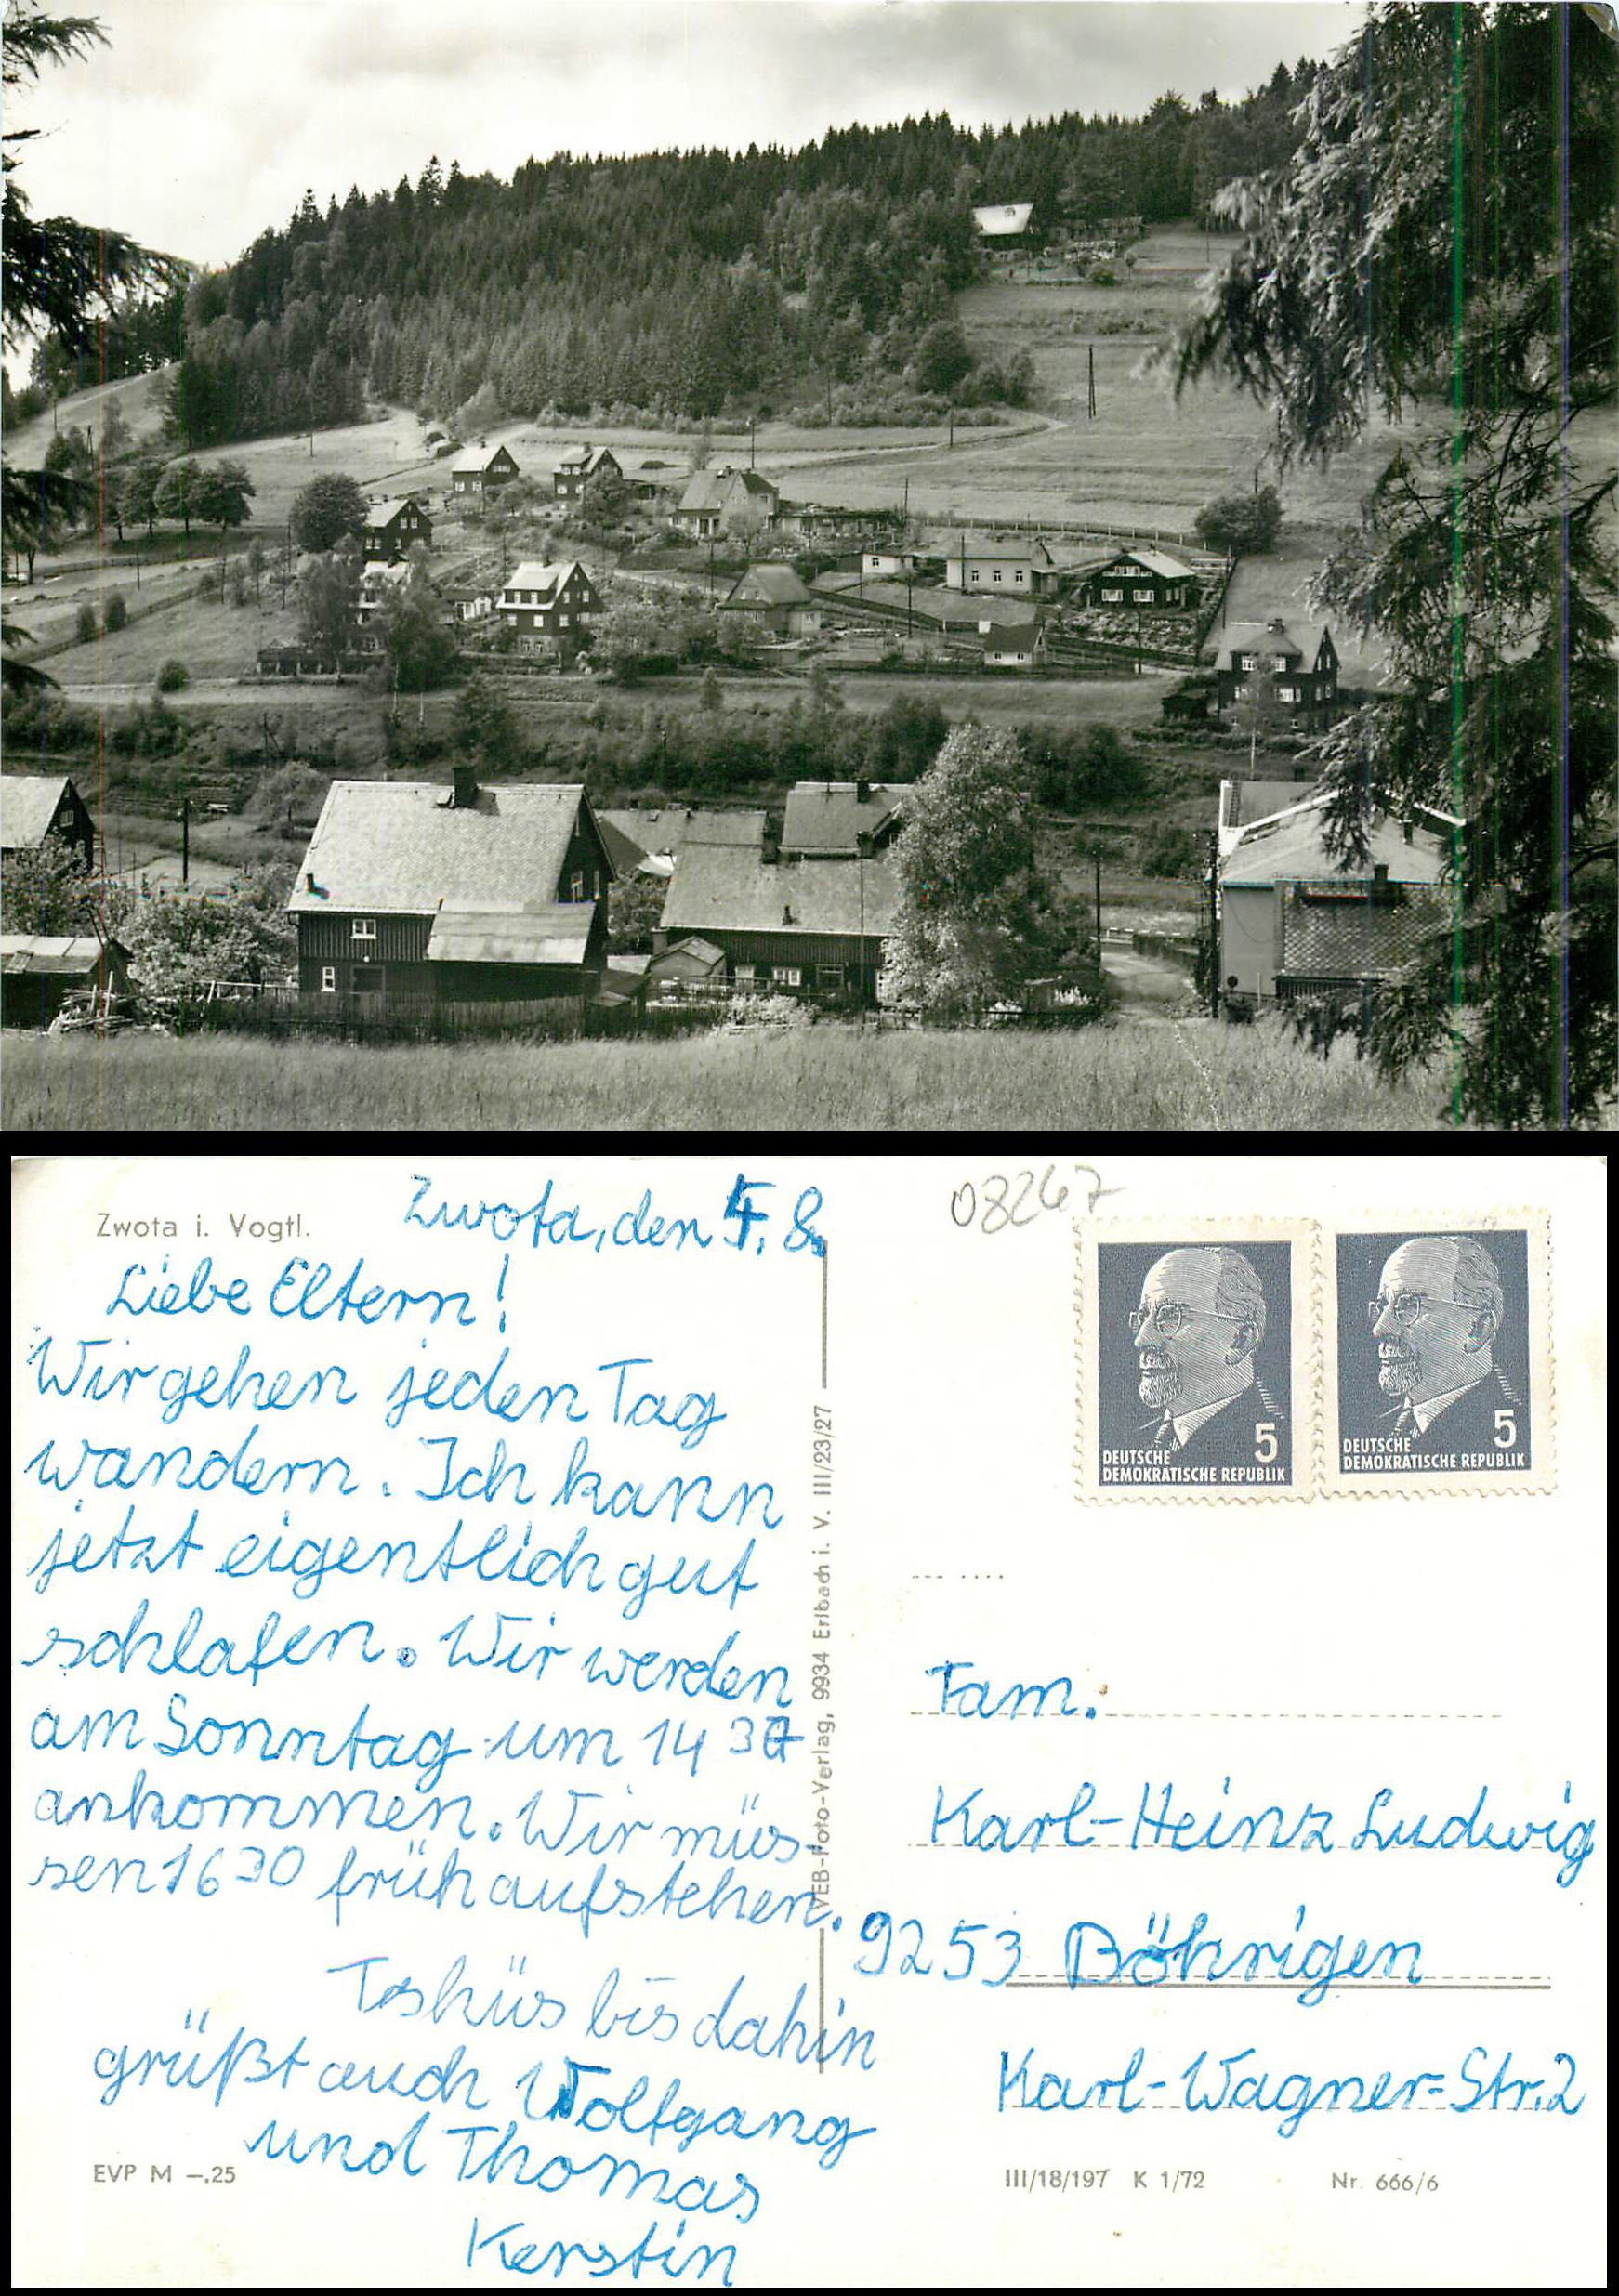 Zwota i. Vogtl.
Zwota, den 4. 8.
Liebe Eltern!
Wir gehen jeden Tag
wandern. Ich kann
jetzt eigentlich gut
schlafen. Wir werden
am Sonntag um 14 30
ankommen. Wir müs-
sen 16 30 früh aufstehen.
Tshüs bis dahin
grüßt auch Wolfgang
und Thomas
Kerstin
EVP M –.25
VEB-Foto-Verlag, 9934 Erlbach i. V. III/23/27
08267
5
DEUTSCHE
DEMOKRATISCHE REPUBLIK
5
DEUTSCHE
DEMOKRATISCHE REPUBLIK
Fam.
Karl-Heinz Ludwig
9253 Böhrigen
Karl-Wagner-Str. 2
III/18/197 K 1/72
Nr. 666/6